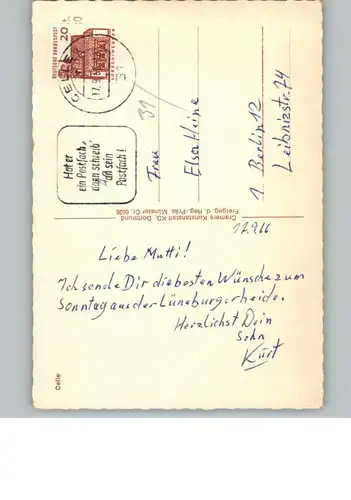 DEUTSCHE BUNDESPOST
20
CELLE
Hat er
ein Postfach,
dann schreib'
auf sein
Postfach!
31
Frau
Elsa Heine
1 Berlin 12
Leibnizstr. 74
Cramers Kunstanstalt KG, Dortmund
Freigeg. d. Reg.-Präs. Münster Cr. 6536
17.9.66
Liebe Mutti!
Ich sende Dir die besten Wünsche zum
Sonntag aus der Lüneburger heide.
Herzlichst Dein
Sohn
Kurt
Celle